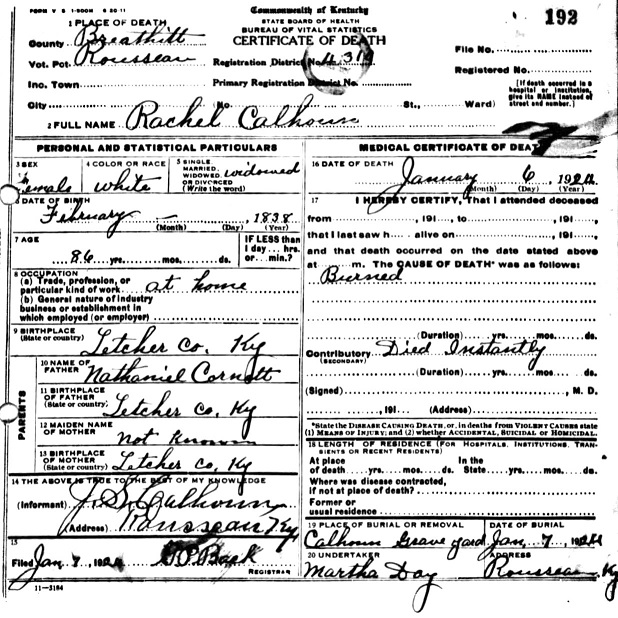 FORM V S 1-500M 6 20 11
Commonwealth of Kentucky
STATE BOARD OF HEALTH
BUREAU OF VITAL STATISTICS
CERTIFICATE OF DEATH
192
1 PLACE OF DEATH
County Breathitt
Vot. Pct. Rousseau
Registration District No.
File No.
Inc. Town
Primary Registration District No.
Registered No.
City No. St., Ward)
[If death occurred in a hospital or institution, give its NAME instead of street and number.]
2 FULL NAME Rachel Calhoun
PERSONAL AND STATISTICAL PARTICULARS
3 SEX
Female
4 COLOR OR RACE
white
5 SINGLE, MARRIED, WIDOWED OR DIVORCED (Write the word)
widowed
6 DATE OF BIRTH
February — 1838
(Month) (Day) (Year)
7 AGE
86 yrs. mos. ds.
IF LESS than 1 day... hrs. or... min.?
8 OCCUPATION
(a) Trade, profession, or particular kind of work at home
(b) General nature of industry business or establishment in which employed (or employer)
9 BIRTHPLACE
(State or country) Letcher co. Ky
PARENTS
10 NAME OF FATHER Nathaniel Cornett
11 BIRTHPLACE OF FATHER (State or country) Letcher co, Ky
12 MAIDEN NAME OF MOTHER Not Known
13 BIRTHPLACE OF MOTHER (State or country) Letcher co. Ky
14 THE ABOVE IS TRUE TO THE BEST OF MY KNOWLEDGE
(Informant) J. S. Calhoun
(Address) Rousseau Ky
15
Filed Jan 7 1924 Back
REGISTRAR
11-3184
MEDICAL CERTIFICATE OF DEATH
16 DATE OF DEATH
January 6, 1924
(Month) (Day) (Year)
17 I HEREBY CERTIFY, That I attended deceased
from , 191 , to , 191 ,
that I last saw h alive on , 191 ,
and that death occurred on the date stated above
at m. The CAUSE OF DEATH* was as follows:
Burned
(Duration) yrs. mos. ds.
Contributory Died Instantly
(SECONDARY)
(Duration) yrs. mos. ds.
(Signed) , M. D.
, 191 (Address)
*State the DISEASE CAUSING DEATH, or, in deaths from VIOLENT CAUSES state (1) MEANS OF INJURY; and (2) whether ACCIDENTAL, SUICIDAL OR HOMICIDAL.
18 LENGTH OF RESIDENCE (FOR HOSPITALS, INSTITUTIONS, TRANSIENTS OR RECENT RESIDENTS)
At place of death yrs. mos. ds. In the State yrs. mos. ds.
Where was disease contracted, if not at place of death?
Former or usual residence
19 PLACE OF BURIAL OR REMOVAL
Calhoun Grave yard
DATE OF BURIAL
Jan 7, 1924
20 UNDERTAKER
Martha Day
ADDRESS
Rousseau, Ky